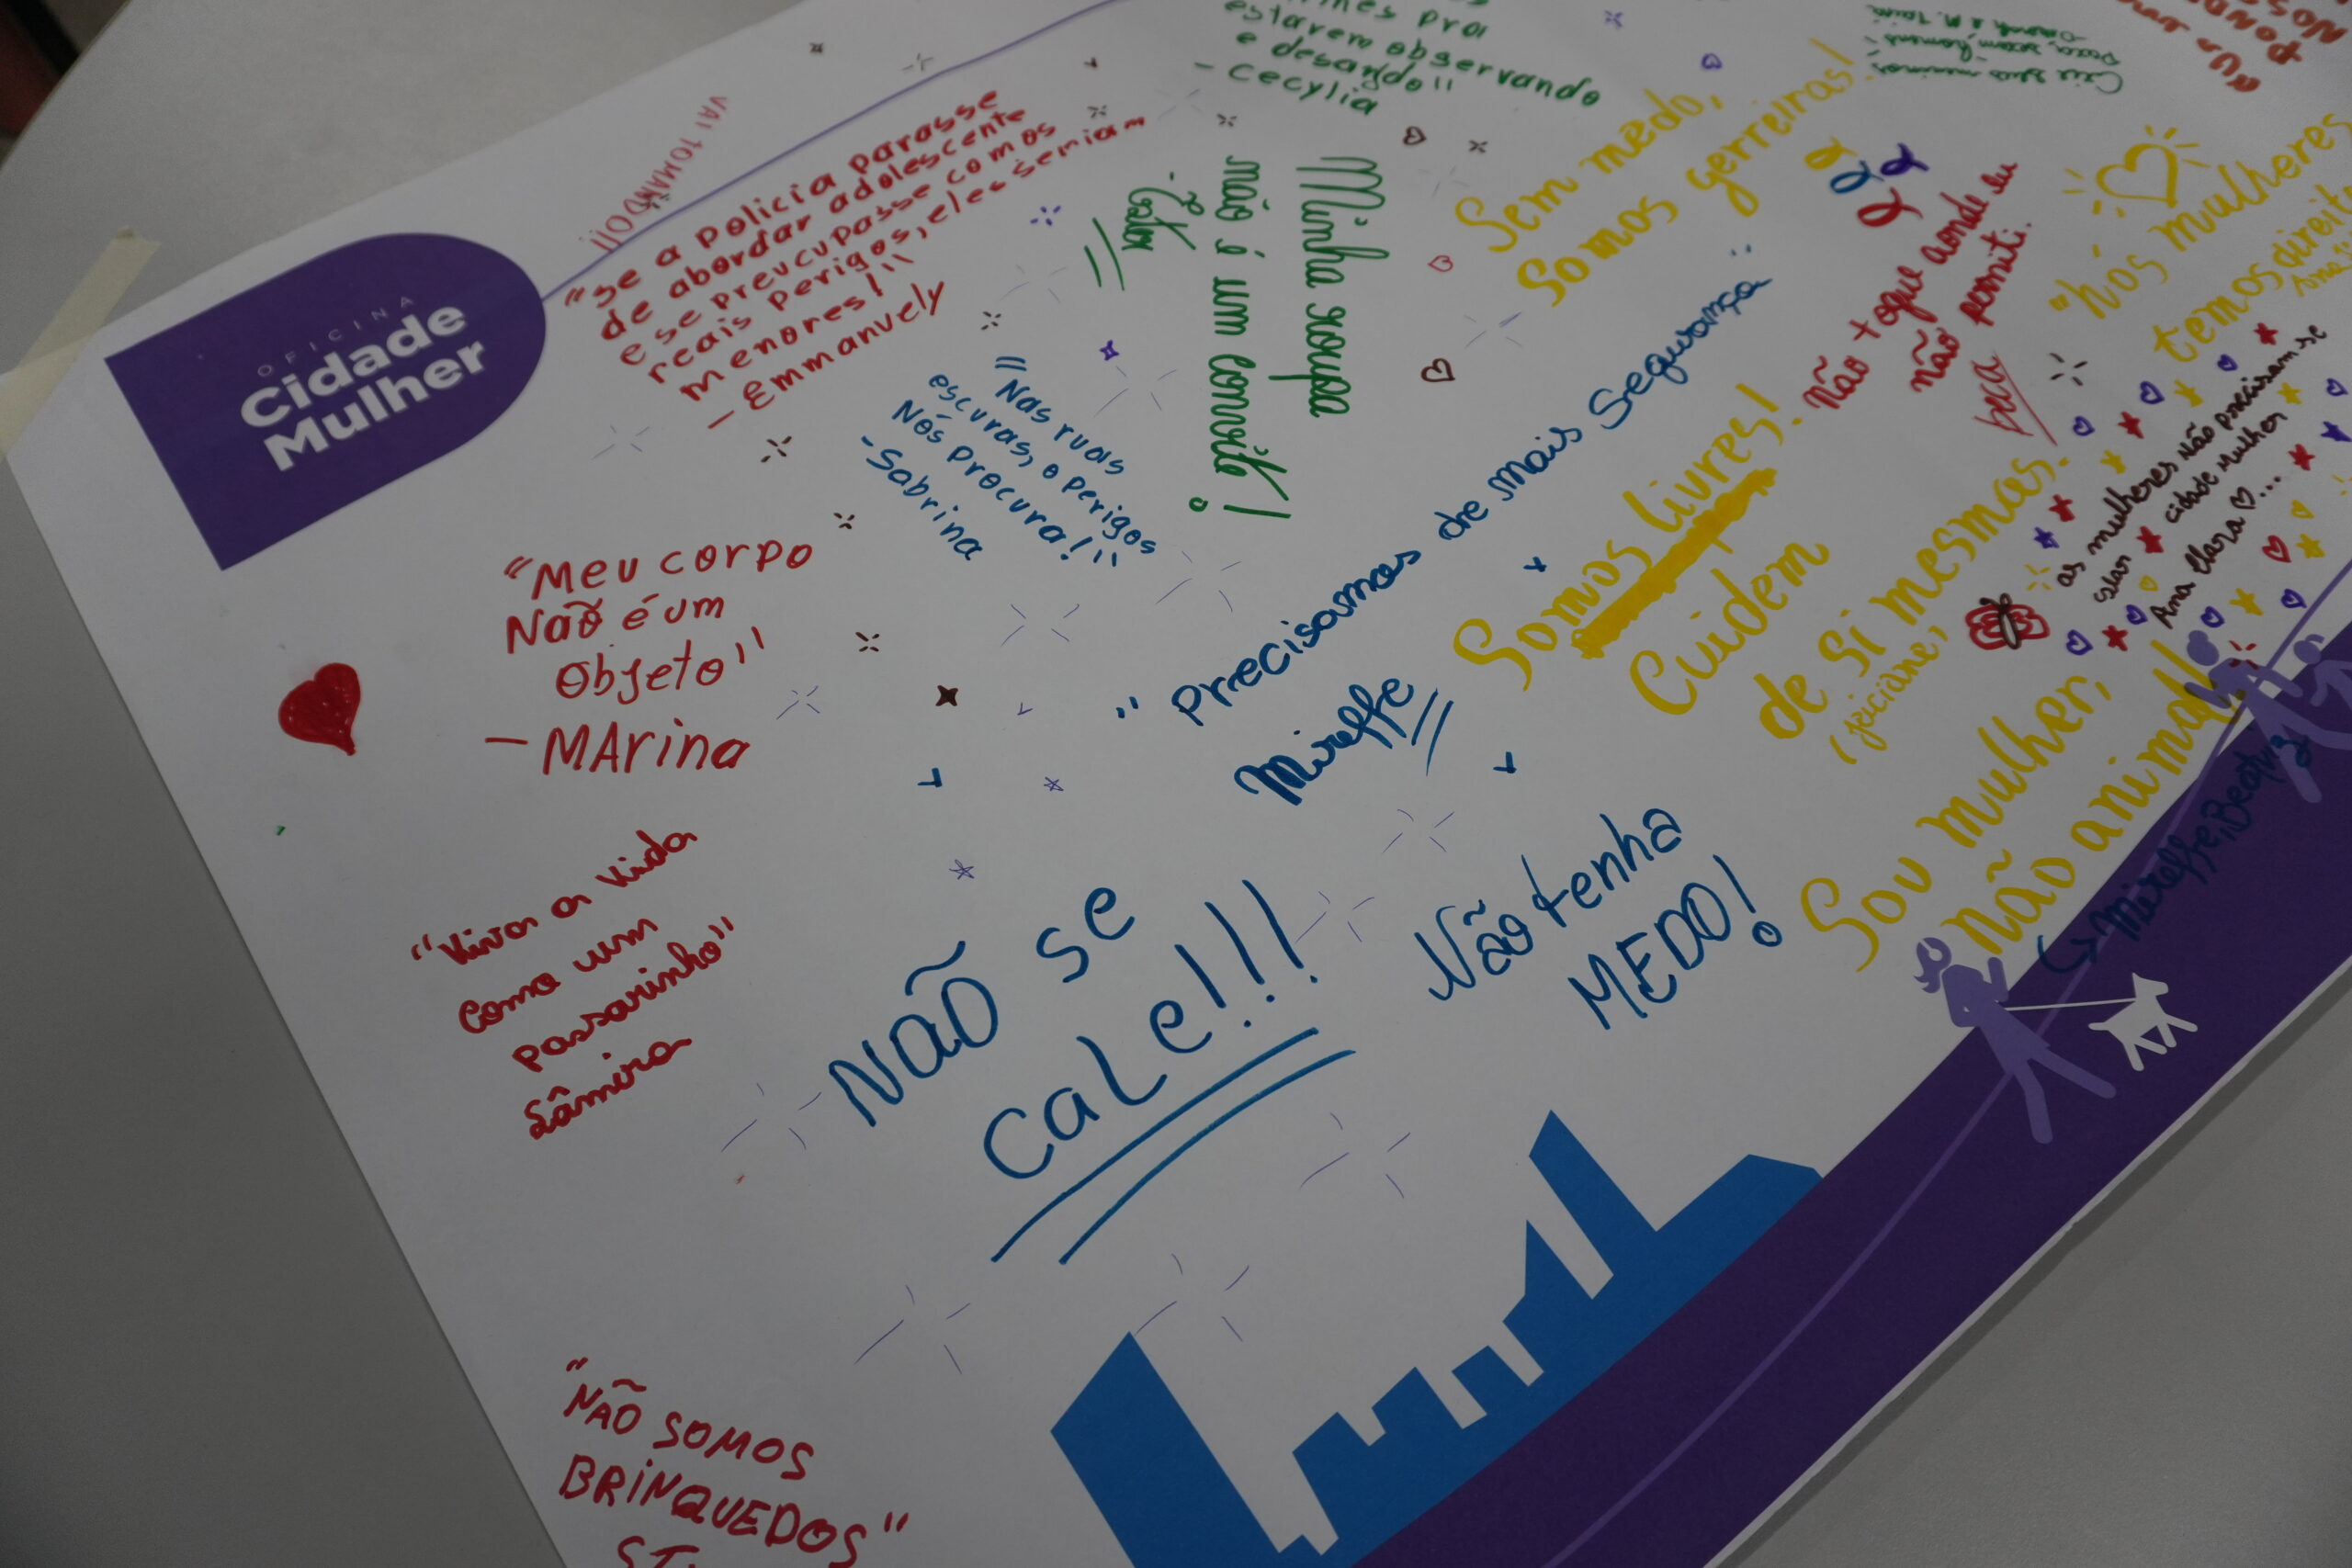 OFICINA
Cidade
Mulher
VAI TOMANDO!!
"Se a policia parasse
de abordar adolescente
e se preucupasse com os
reais perigos, eles seriam
menores!"
- Emmanuely
estarem observando
e
- Cecylia
Minha roupa
não é um convite!
"Nas ruas
escuras, o perigos
Nós procura!"
- Sabrina
Sem medo,
Somos gerreiras!
Crie seus meninos
"Nós mulheres
temos direito
não toque aonde eu
não permiti.
"Meu corpo
Não é um
Objeto"
- MArina
"Precisamos de mais Segurança"
Mireffe
Somos livres!
Cuidem
de Si mesmas.
(joiciane)
as mulheres não precisam se
cidade mulher
Ana Clara ♡...
"Viva a vida
Como um
Passarinho"
Sâmira
NÃO se
CaLe!!!
Não tenha
MEDO!
Sou mulher,
não animal!
Mireffe, Beatriz
"NÃO SOMOS
BRINQUEDOS"